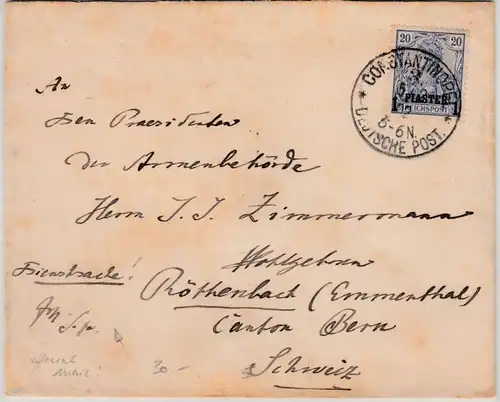 20 20
1 PIASTER 1
REICHSPOST
CONSTANTINOPEL
5-6N.
* DEUTSCHE POST. *
An
Den Praesidenten
der Armenbehörde
Herrn J. J. Zimmermann
Wohlgeboren
Dienstsache!
Röthenbach (Emmenthal)
Canton Bern
Schweiz
mail!
30.-